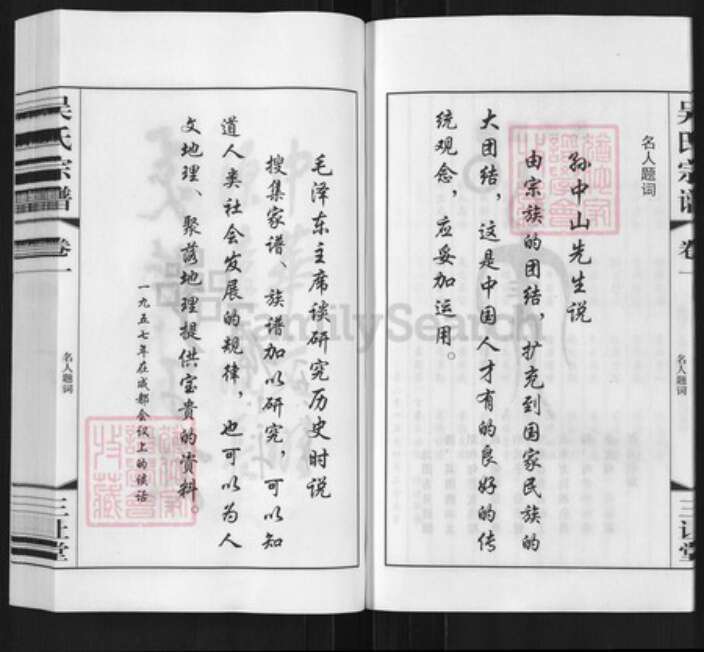 名人题词
孙中山先生说
由宗族的团结，扩充到国家民族的
大团结，这是中国人才有的良好的传
统观念，应妥加运用。
吴氏宗谱 卷一 名人题词 三让堂
毛泽东主席谈研究历史时说
搜集家谱、族谱加以研究，可以知
道人类社会发展的规律，也可以为人
文地理、聚落地理提供宝贵的资料。
一九五七年在成都会议上的谈话
吴氏宗谱 卷一 名人题词 三让堂
FamilySearch